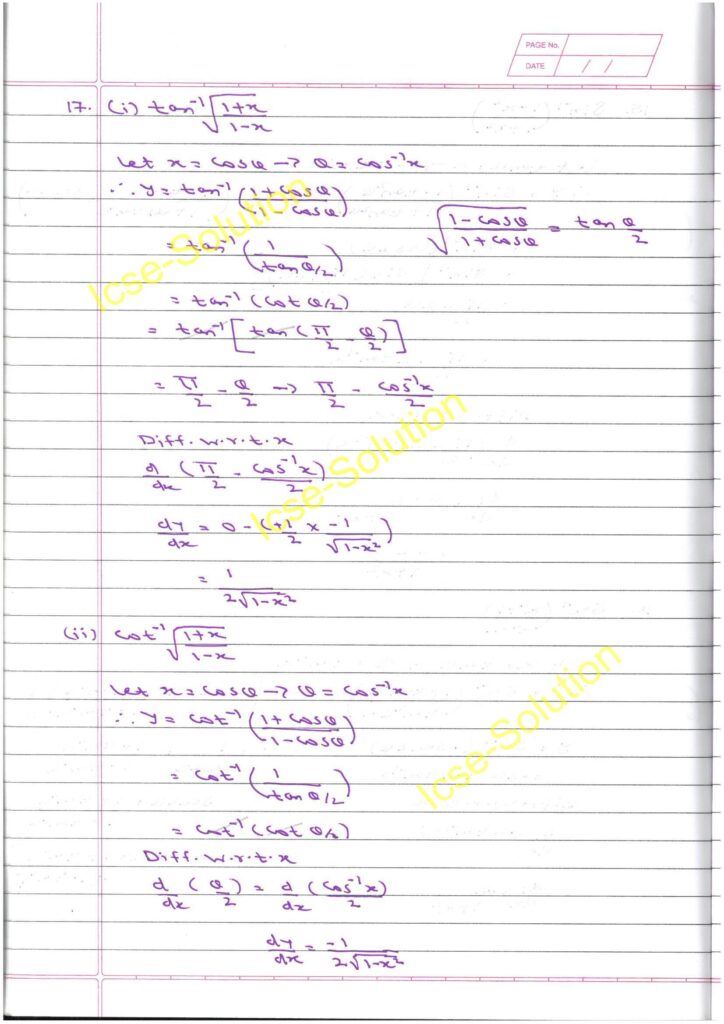 PAGE No.
DATE / /
17. (i) tan⁻¹ √(1+x)/(1-x)
Let x = cosθ → θ = cos⁻¹x
∴ y = tan⁻¹ ((1+cosθ)/(1-cosθ))
√(1-cosθ)/(1+cosθ) = tan θ/2
= tan⁻¹ (1/(tan θ/2))
= tan⁻¹ (cot θ/2)
= tan⁻¹ [tan (π/2 - θ/2)]
= π/2 - θ/2 → π/2 - cos⁻¹x/2
Diff. w.r.t. x
d/dx (π/2 - cos⁻¹x/2)
dy/dx = 0 - (+1/2 × -1/√1-x²)
= 1/2√1-x²
(ii) cot⁻¹ √(1+x)/(1-x)
Let x = cosθ → θ = cos⁻¹x
∴ y = cot⁻¹ ((1+cosθ)/(1-cosθ))
= cot⁻¹ (1/(tan θ/2))
= cot⁻¹ (cot θ/2)
Diff. w.r.t. x
d/dx (θ/2) = d/dx (cos⁻¹x)/2
dy/dx = -1/2√1-x²
Icse-Solution
Icse-Solution
Icse-Solution